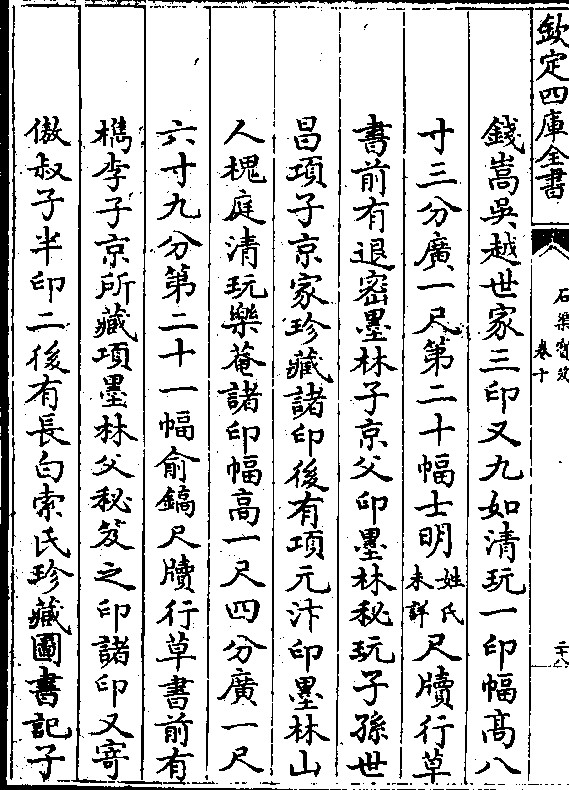 欽定四庫全書
石渠寳笈
卷十
二十八
錢嵩吳越世家三印又九如清玩一印幅髙八
寸三分廣一尺第二十幅士明姓氏未詳尺牘行草
書前有退密墨林子京父印墨林秘玩子孫世
昌項子京家珍藏諸印後有項元汴印墨林山
人槐庭清玩樂菴諸印幅高一尺四分廣一尺
六寸九分第二十一幅俞鎬尺牘行草書前有
檇李子京所藏項墨林父秘笈之印諸印又寄
傲叔子半印二後有長白索氏珍藏圖書記子